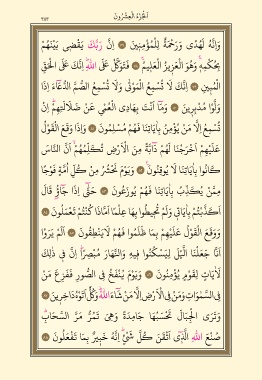 اَلْجُزْءُ الْعِشْرُونَ
٣٨٣
وَاِنَّهُ لَهُدًى وَرَحْمَةٌ لِلْمُؤْمِنٖينَ ﴿٧٧﴾ اِنَّ رَبَّكَ يَقْضٖى بَيْنَهُمْ
بِحُكْمِهٖ وَهُوَ الْعَزٖيزُ الْعَلٖيمُ ﴿٧٨﴾ فَتَوَكَّلْ عَلَى اللّٰهِ اِنَّكَ عَلَى الْحَقِّ
الْمُبٖينِ ﴿٧٩﴾ اِنَّكَ لَا تُسْمِعُ الْمَوْتٰى وَلَا تُسْمِعُ الصُّمَّ الدُّعَٓاءَ اِذَا
وَلَّوْا مُدْبِرٖينَ ﴿٨٠﴾ وَمَٓا اَنْتَ بِهَادِى الْعُمْىِ عَنْ ضَلَالَتِهِمْ اِنْ
تُسْمِعُ اِلَّا مَنْ يُؤْمِنُ بِاٰيَاتِنَا فَهُمْ مُسْلِمُونَ ﴿٨١﴾ وَاِذَا وَقَعَ الْقَوْلُ
عَلَيْهِمْ اَخْرَجْنَا لَهُمْ دَٓابَّةً مِنَ الْاَرْضِ تُكَلِّمُهُمْ اَنَّ النَّاسَ
كَانُوا بِاٰيَاتِنَا لَا يُوقِنُونَ ﴿٨٢﴾ وَيَوْمَ نَحْشُرُ مِنْ كُلِّ اُمَّةٍ فَوْجًا
مِمَّنْ يُكَذِّبُ بِاٰيَاتِنَا فَهُمْ يُوزَعُونَ ﴿٨٣﴾ حَتّٰٓى اِذَا جَٓاؤُ۫ قَالَ
اَكَذَّبْتُمْ بِاٰيَاتٖى وَلَمْ تُحٖيطُوا بِهَا عِلْمًا اَمَّاذَا كُنْتُمْ تَعْمَلُونَ ﴿٨٤﴾
وَوَقَعَ الْقَوْلُ عَلَيْهِمْ بِمَا ظَلَمُوا فَهُمْ لَا يَنْطِقُونَ ﴿٨٥﴾ اَلَمْ يَرَوْا
اَنَّا جَعَلْنَا الَّيْلَ لِيَسْكُنُوا فٖيهِ وَالنَّهَارَ مُبْصِرًا اِنَّ فٖى ذٰلِكَ
لَاٰيَاتٍ لِقَوْمٍ يُؤْمِنُونَ ﴿٨٦﴾ وَيَوْمَ يُنْفَخُ فِى الصُّورِ فَفَزِعَ مَنْ
فِى السَّمٰوَاتِ وَمَنْ فِى الْاَرْضِ اِلَّا مَنْ شَٓاءَ اللّٰهُ وَكُلٌّ اَتَوْهُ دَاخِرٖينَ ﴿٨٧﴾
وَتَرَى الْجِبَالَ تَحْسَبُهَا جَامِدَةً وَهِىَ تَمُرُّ مَرَّ السَّحَابِ
صُنْعَ اللّٰهِ الَّذٖٓى اَتْقَنَ كُلَّ شَیْءٍ اِنَّهُ خَبٖيرٌ بِمَا تَفْعَلُونَ ﴿٨٨﴾